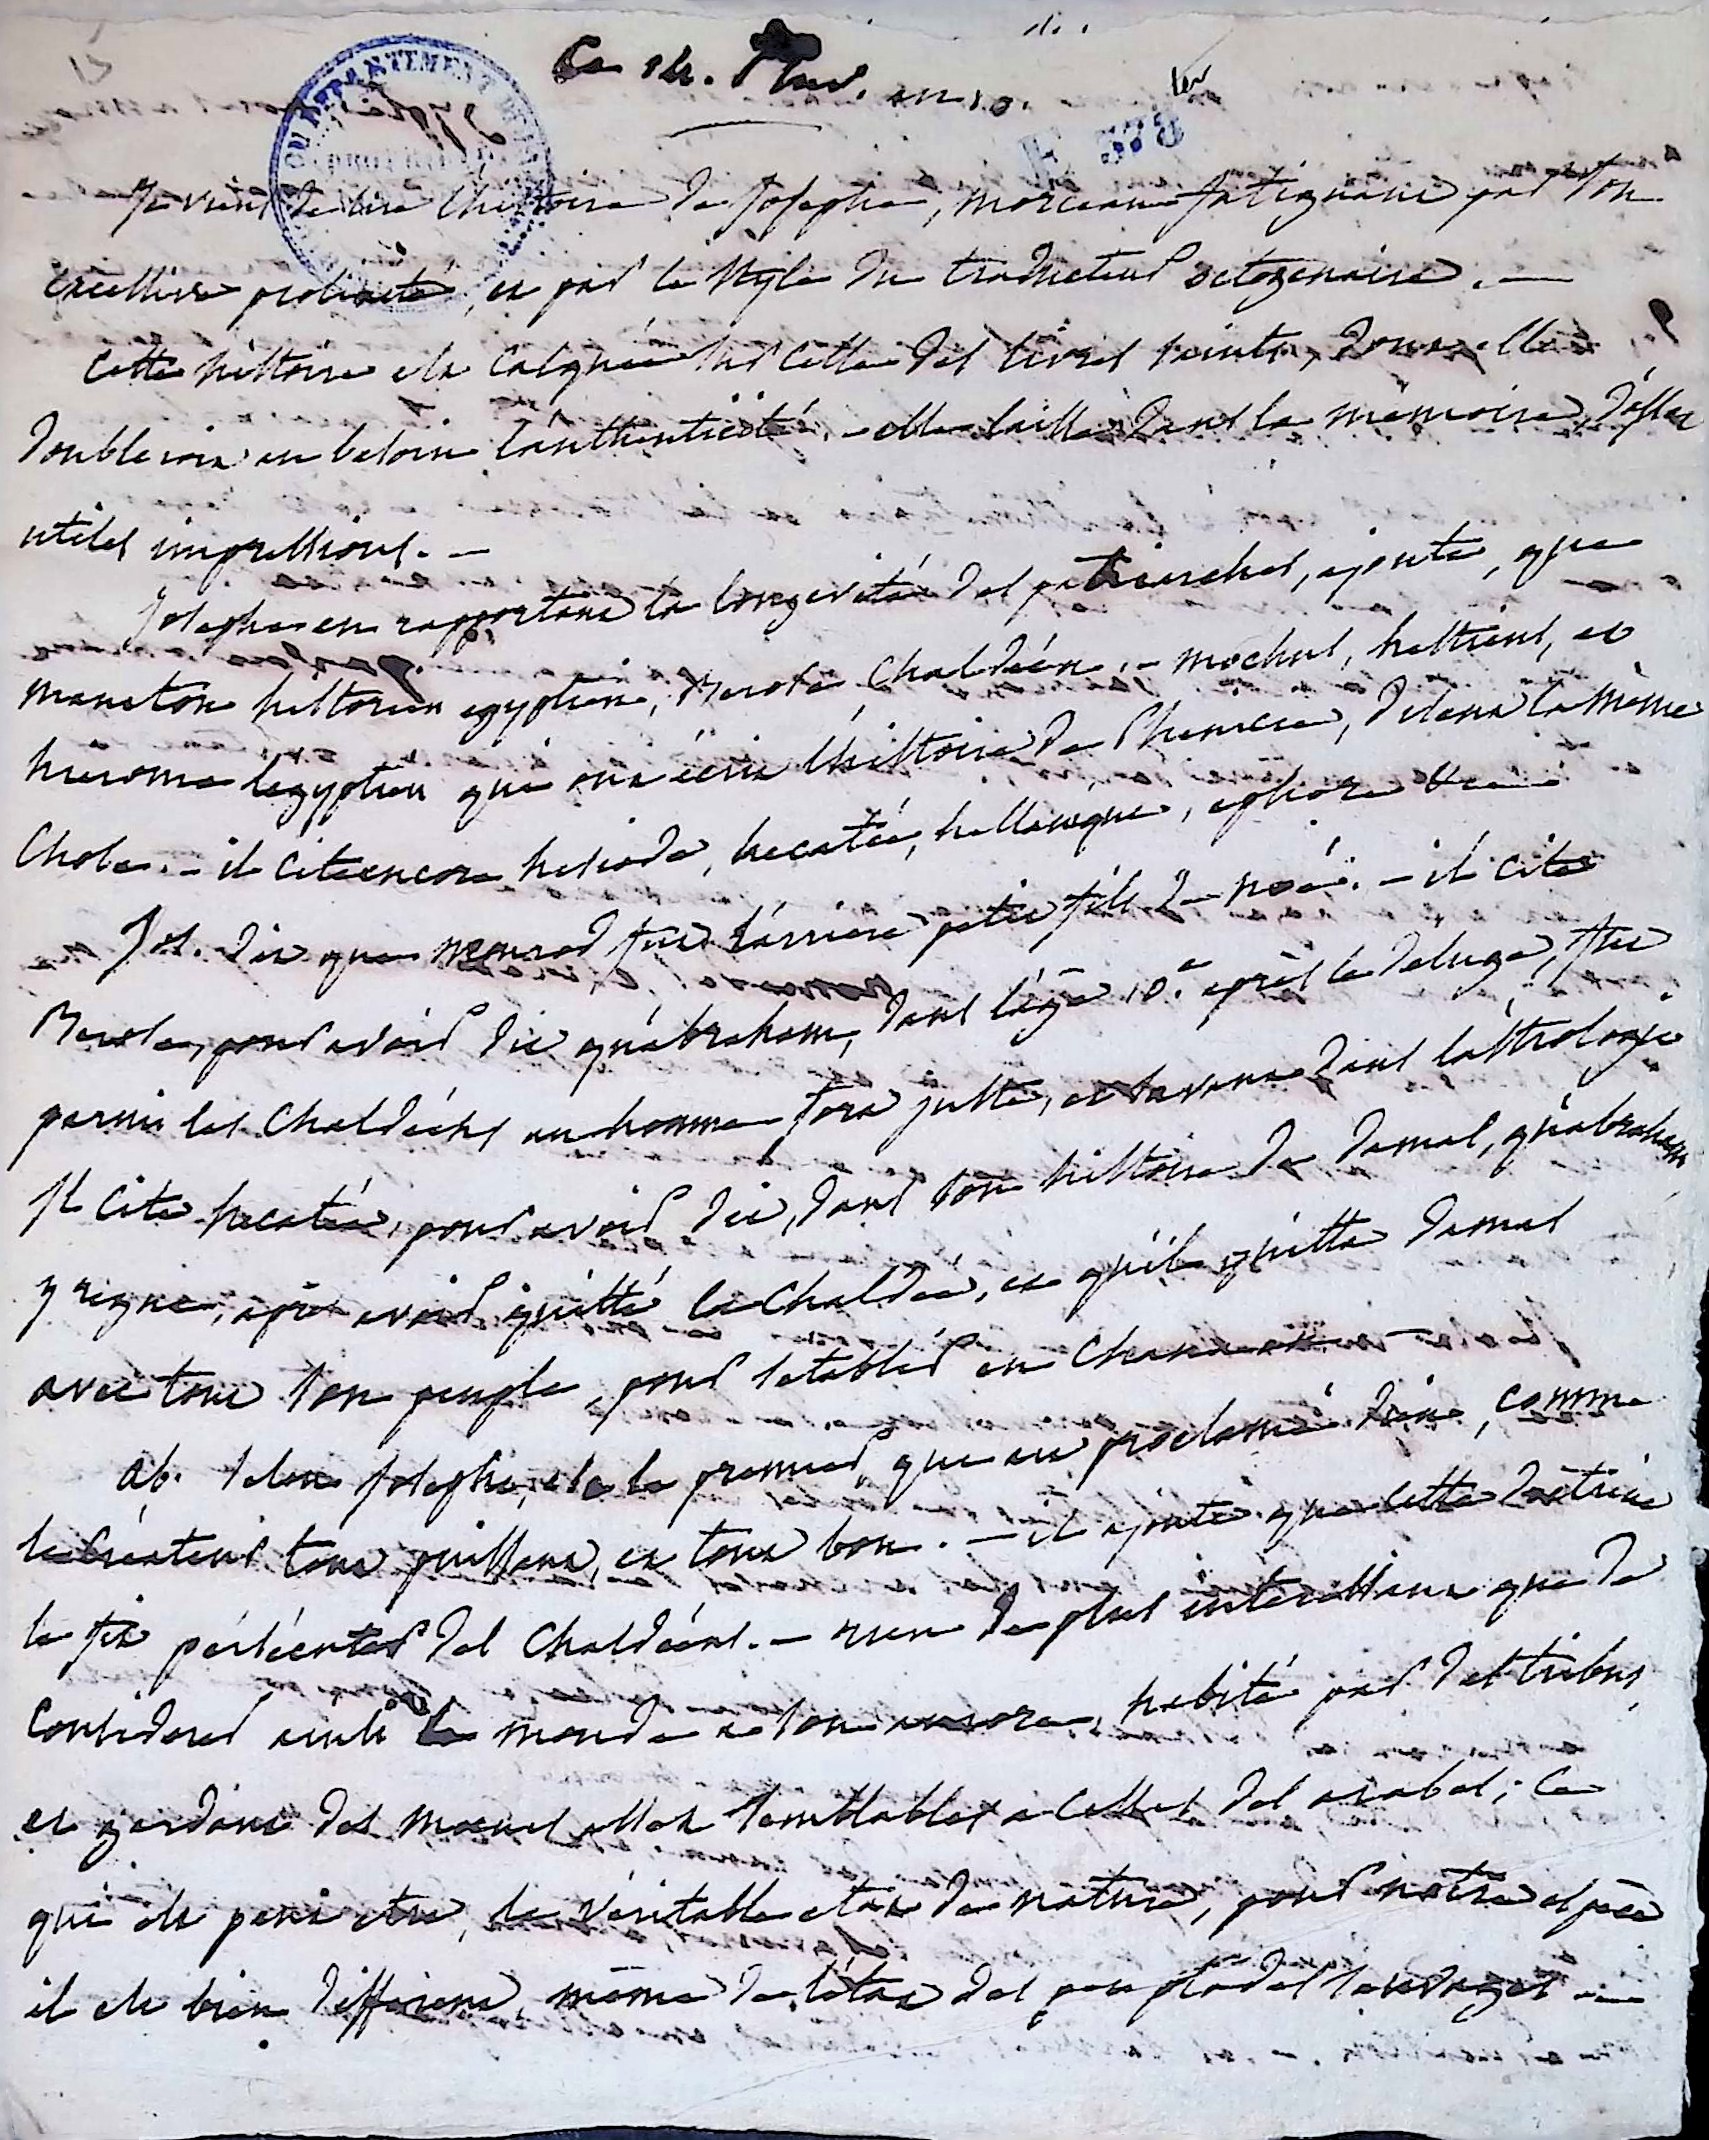 Ce 14. Pluv. an 10.
Je viens de lire l'histoire de Josephe, morceau fatiguant par son
excessive prolixité, et par le style du traducteur octogenaire. —
cette histoire est calquée sur celle des livres saints, dont elle
doubleroit au besoin l'authenticité. - elle laisse dans la mémoire, d'assez
utiles impressions. —
Josephe en rapportant la longevité des patriarches, ajoute, que
maneton historien egyptien, Berose, Chaldéen. - mochus, hestieus, et
hierome l'egyptien qui ont écrit l'histoire de Phenicie, disent la même
Chose. - il cite encore hesiode, hecatée, hellanique, ephore
Jos. dit que nemrod fut l'arriere petit fils de noé. - il cite
Berose, pour avoir dit qu'abraham, dans l'âge 10.e après le deluge, fut
parmi les Chaldéens un homme fort juste, et savant dans l'astrologie
Il cite hecatée, pour avoir dit, dans son histoire de damas, qu'abraham
y regna, après avoir quitté la Chaldée, et qu'il quitta damas
avec tout son peuple, pour s'etablir en Chanaan —
ab. selon Josephe, est le premier, qui ait proclamé dieu, comme
le Créateur tout puissant, et tout bon. - il ajoute que cette doctrine
le fit persécuter des Chaldéens. - rien de plus interessant que de
considerer ainsi le monde a son aurore, habité par des tribus,
et gardant des moeurs assez semblables a celles des arabes; ce
qui est peut etre, le véritable etat de nature, pour notre espèce
il est bien different, même de l'état des peuplades sauvages